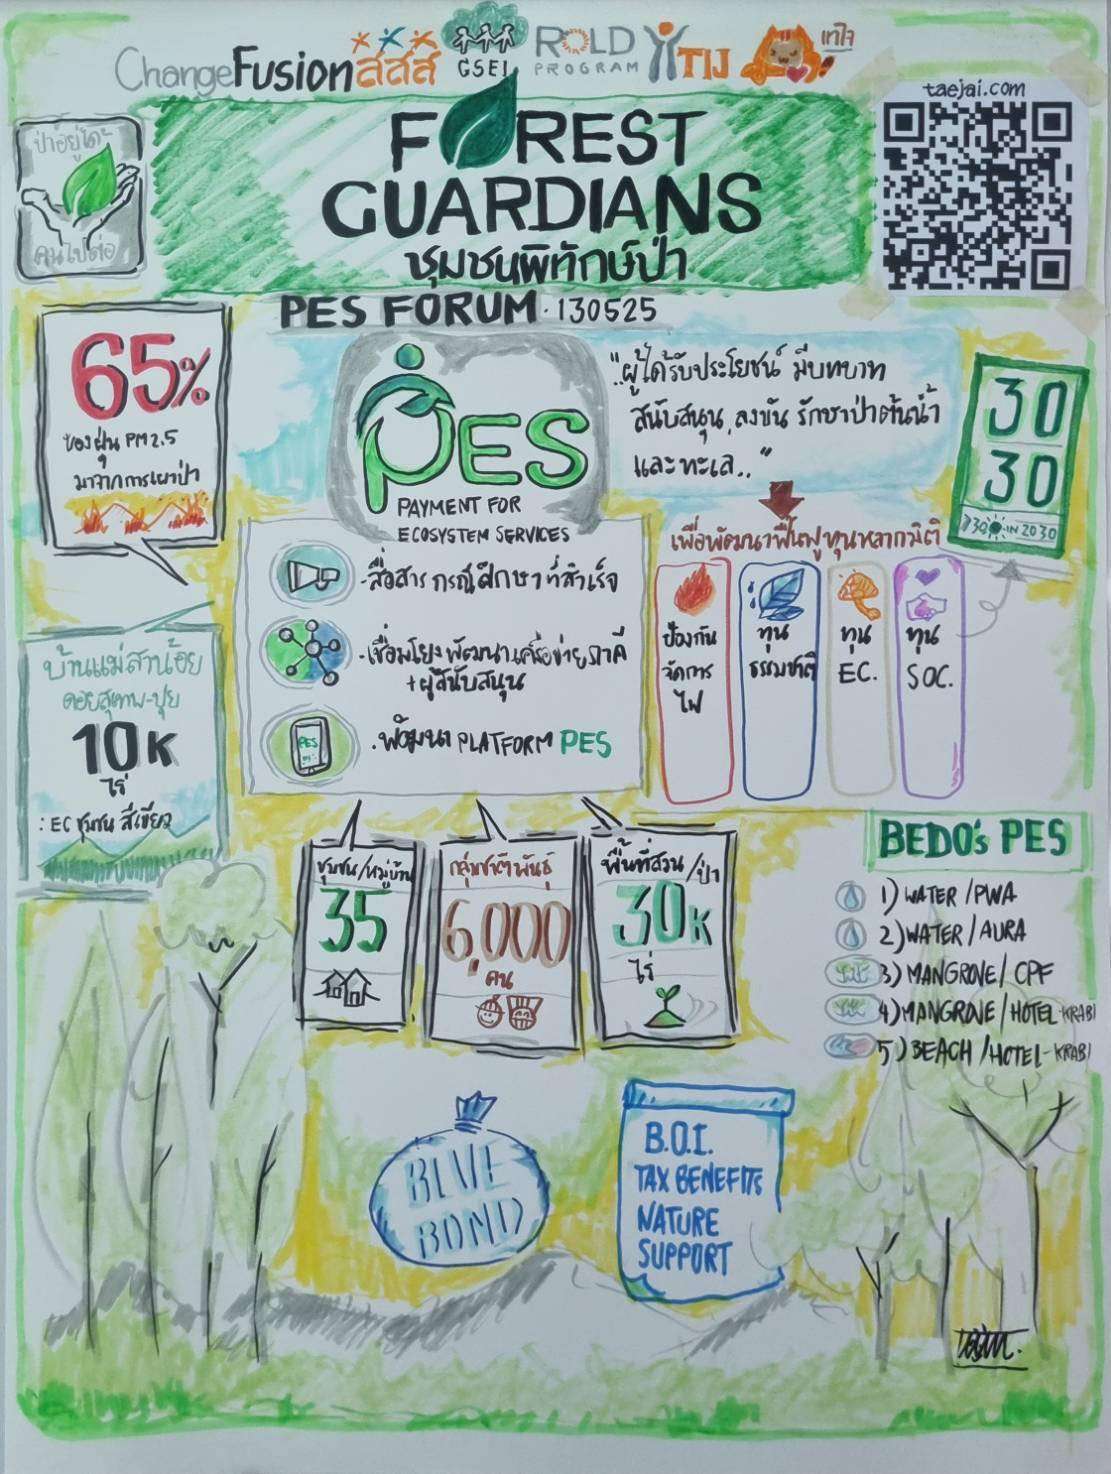 ChangeFusion
สสส
GSEI
ROLD
PROGRAM
TIJ
เทใจ
taejai.com
ป่าอยู่ได้
คนไปต่อ
FOREST
GUARDIANS
ชุมชนพิทักษ์ป่า
PES FORUM · 130525
65%
ของฝุ่น PM 2.5
มาจากการเผาป่า
PES
PAYMENT FOR
ECOSYSTEM SERVICES
"..ผู้ได้รับประโยชน์ มีบทบาท
สนับสนุน, ลงขัน รักษาป่าต้นน้ำ
และทะเล.."
30
30
IN 2030
เพื่อพัฒนาฟื้นฟูทุนหลากมิติ
ป้องกัน
จัดการ
ไฟ
ทุน
ธรรมชาติ
ทุน
EC.
ทุน
SOC.
- สื่อสาร กรณีศึกษาที่สำเร็จ
- เชื่อมโยงพัฒนาเครือข่ายภาคี
+ผู้สนับสนุน
. พัฒนา PLATFORM PES
PES
บ้านแม่สาน้อย
ดอยสุเทพ-ปุย
10K
ไร่
: EC ชุมชน สีเขียว
ชุมชน/หมู่บ้าน
35
กลุ่มชาติพันธุ์
6,000
คน
พื้นที่สวน/ป่า
30K
ไร่
BEDO's PES
1) WATER / PWA
2) WATER / AURA
3) MANGROVE / CPF
4) MANGROVE / HOTEL-KRABI
5) BEACH / HOTEL-KRABI
BLUE
BOND
B.O.I.
TAX BENEFITS
NATURE
SUPPORT